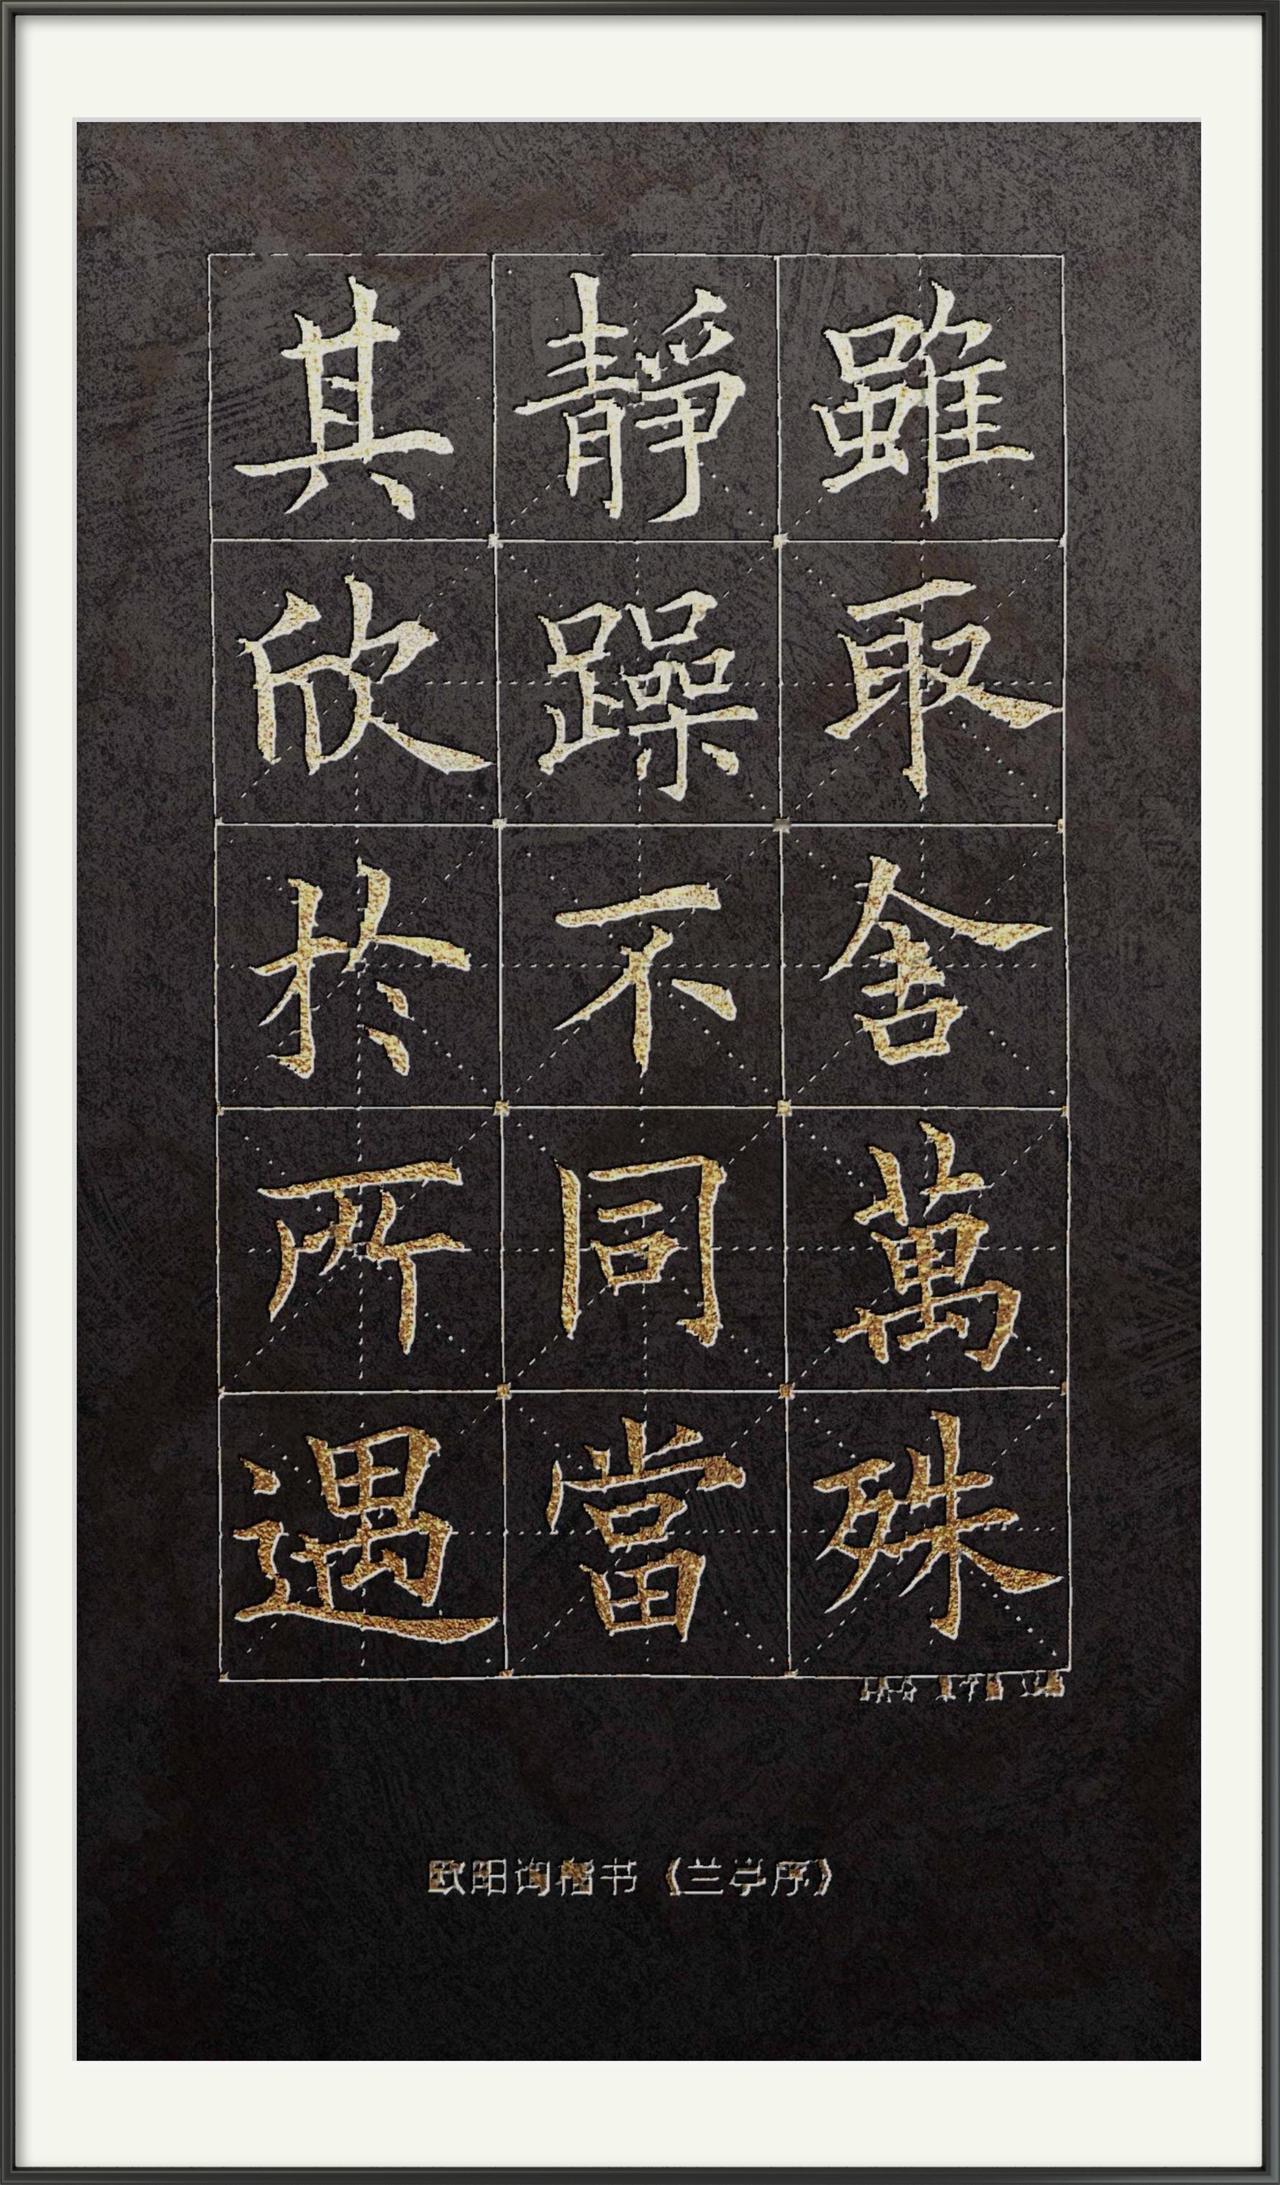 雖取舍萬殊
靜躁不同當
其欣於所遇
欧阳询楷书《兰亭序》